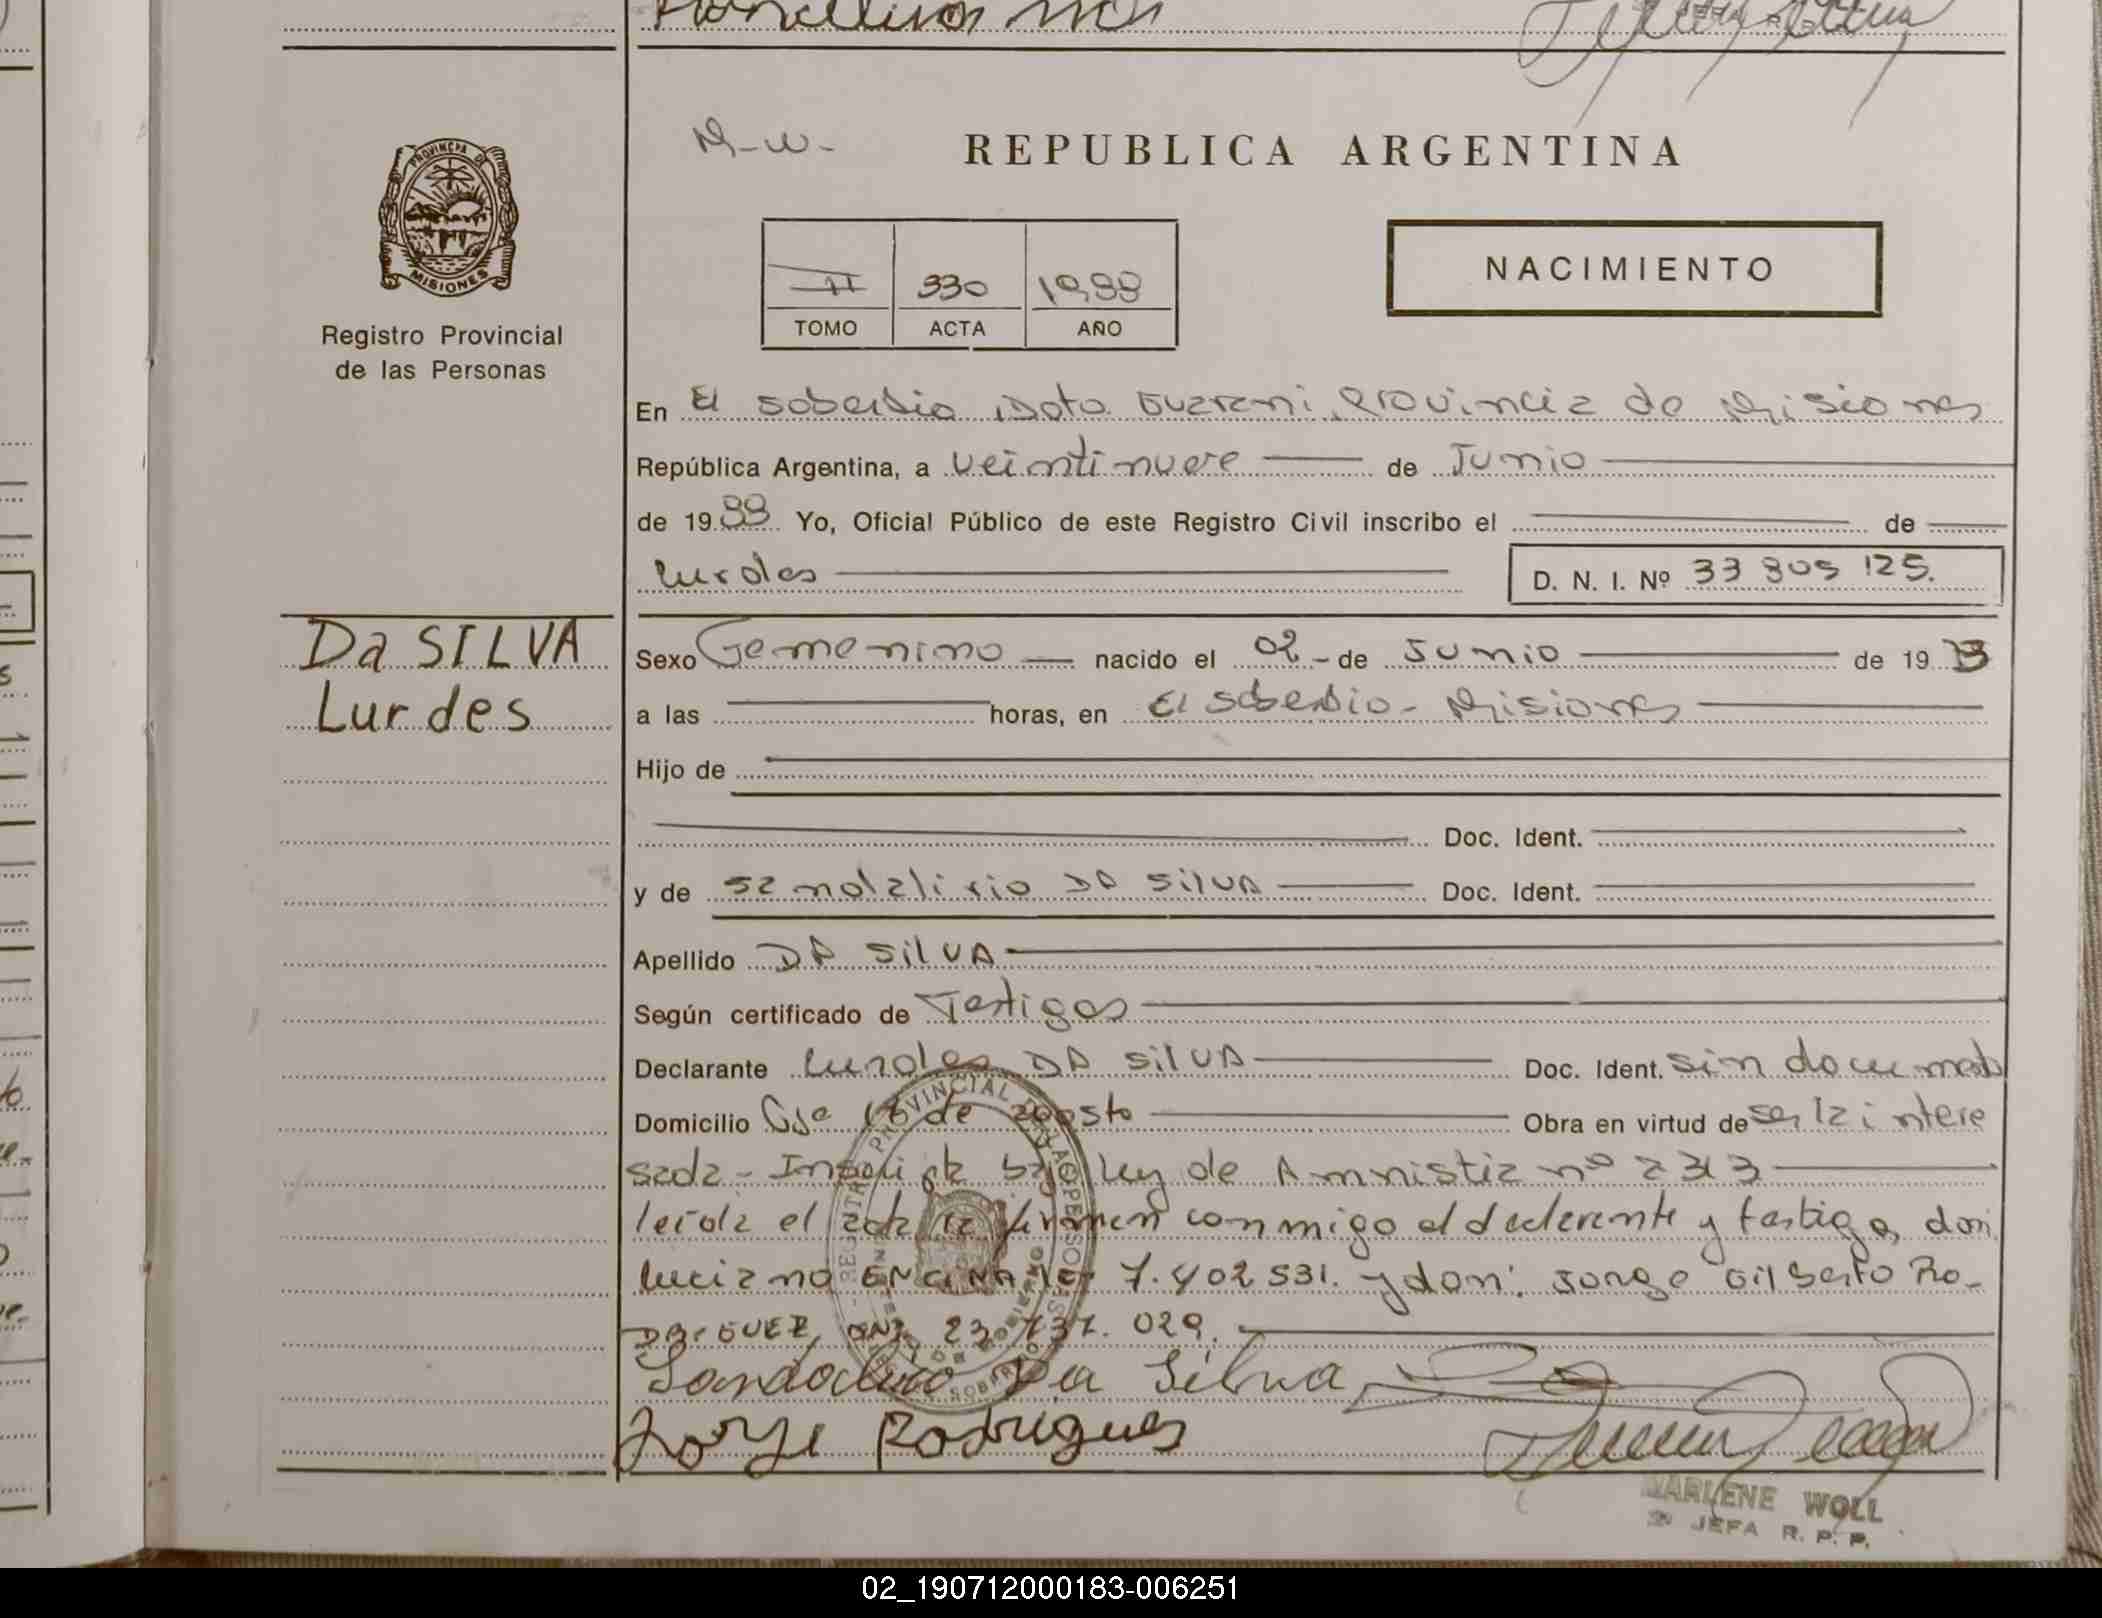 M-W-
REPUBLICA ARGENTINA
PROVINCIA DE
MISIONES
Registro Provincial
de las Personas
II 330 1988
TOMO ACTA AÑO
NACIMIENTO
En El Soberbio, Dpto. Guarani, Provincia de Misiones
República Argentina, a veintinueve de Junio
de 1988 Yo, Oficial Público de este Registro Civil inscribo el de
Lurdes
D. N. I. Nº 33 805 125.
Da SILVA
Lurdes
Sexo Femenino nacido el 02 - de Junio de 19
a las horas, en El Soberbio - Misiones
Hijo de
Doc. Ident.
y de Sandalirio DA SilVA Doc. Ident.
Apellido DA SilVA
Según certificado de Testigos
Declarante Lurdes DA SilVA Doc. Ident. sin document
Domicilio 18 de agosto Obra en virtud de ser la intere
sada - Inscripta bajo Ley de Amnistia nº 2313
leida el acta la firman conmigo el declarante y testigo, don
Luciano ENCINA 7.402 531. y don: Jorge Gilberto Ro-
DRIGUEZ, DNI 23 737. 029.
Sandalirio Da Silva
Jorge Rodrigues
MARLENE WOLL
JEFA R. P. P.
02_190712000183-006251